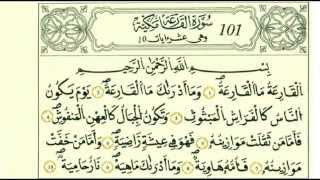 سُورَةُ الْقَارِعَةِ مَكِّيَّةٌ 101
وَهِيَ عَشْرُ ءَايَاتٍ 10
بِسْمِ اللَّهِ الرَّحْمَٰنِ الرَّحِيمِ
الْقَارِعَةُ مَا الْقَارِعَةُ وَمَا أَدْرَىٰكَ مَا الْقَارِعَةُ يَوْمَ يَكُونُ
النَّاسُ كَالْفَرَاشِ الْمَبْثُوثِ وَتَكُونُ الْجِبَالُ كَالْعِهْنِ الْمَنفُوشِ
فَأَمَّا مَن ثَقُلَتْ مَوَازِينُهُ فَهُوَ فِي عِيشَةٍ رَّاضِيَةٍ وَأَمَّا مَنْ خَفَّتْ
مَوَازِينُهُ فَأُمُّهُ هَاوِيَةٌ وَمَا أَدْرَىٰكَ مَا هِيَهْ نَارٌ حَامِيَةٌ